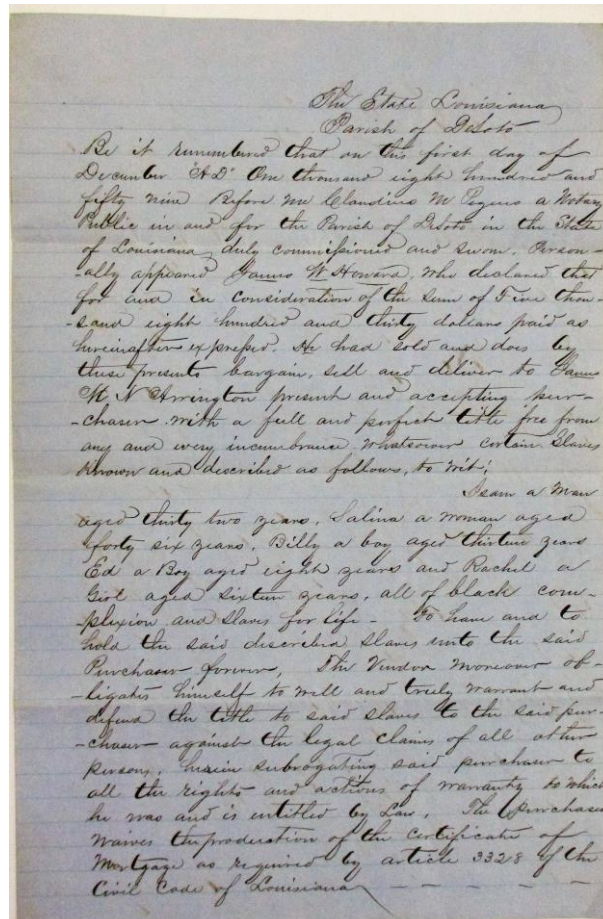 The State Louisiana
Parish of DeSoto
Be it remembered that on this first day of
December A.D. One thousand eight hundred and
fifty nine Before me Claudius M a Notary
Public in and for the Parish of DeSoto in the State
of Louisiana duly commissioned and sworn. Person-
-ally appeared James W Howard, Who declared that
for and in consideration of the sum of Five thou-
-sand eight hundred and thirty dollars paid as
hereinafter expressed. He had sold and does by
these presents bargain, sell and deliver to James
N Arrington present and accepting pur-
-chaser with a full and perfect title free from
any and every incumbrance whatsoever certain Slaves
known and described as follows, to wit;
Isam a Man
aged thirty two years, Salina a woman aged
forty six years, Billy a boy aged thirteen years
Ed a Boy aged eight years and Rachel a
Girl aged sixteen years, all of black com-
-plexion and slaves for life - To have and to
hold the said described slaves unto the said
Purchaser forever, The Vendor moreover ob-
-ligates himself to well and truly warrant and
defend the title to said slaves to the said pur-
-chaser against the legal claims of all other
persons, herein subrogating said purchaser to
all the rights and actions of warranty to which
he was and is entitled by Law. The purchaser
waives the production of the Certificate of
Mortgage as required by article 3328 of the
Civil Code of Louisiana - - - -